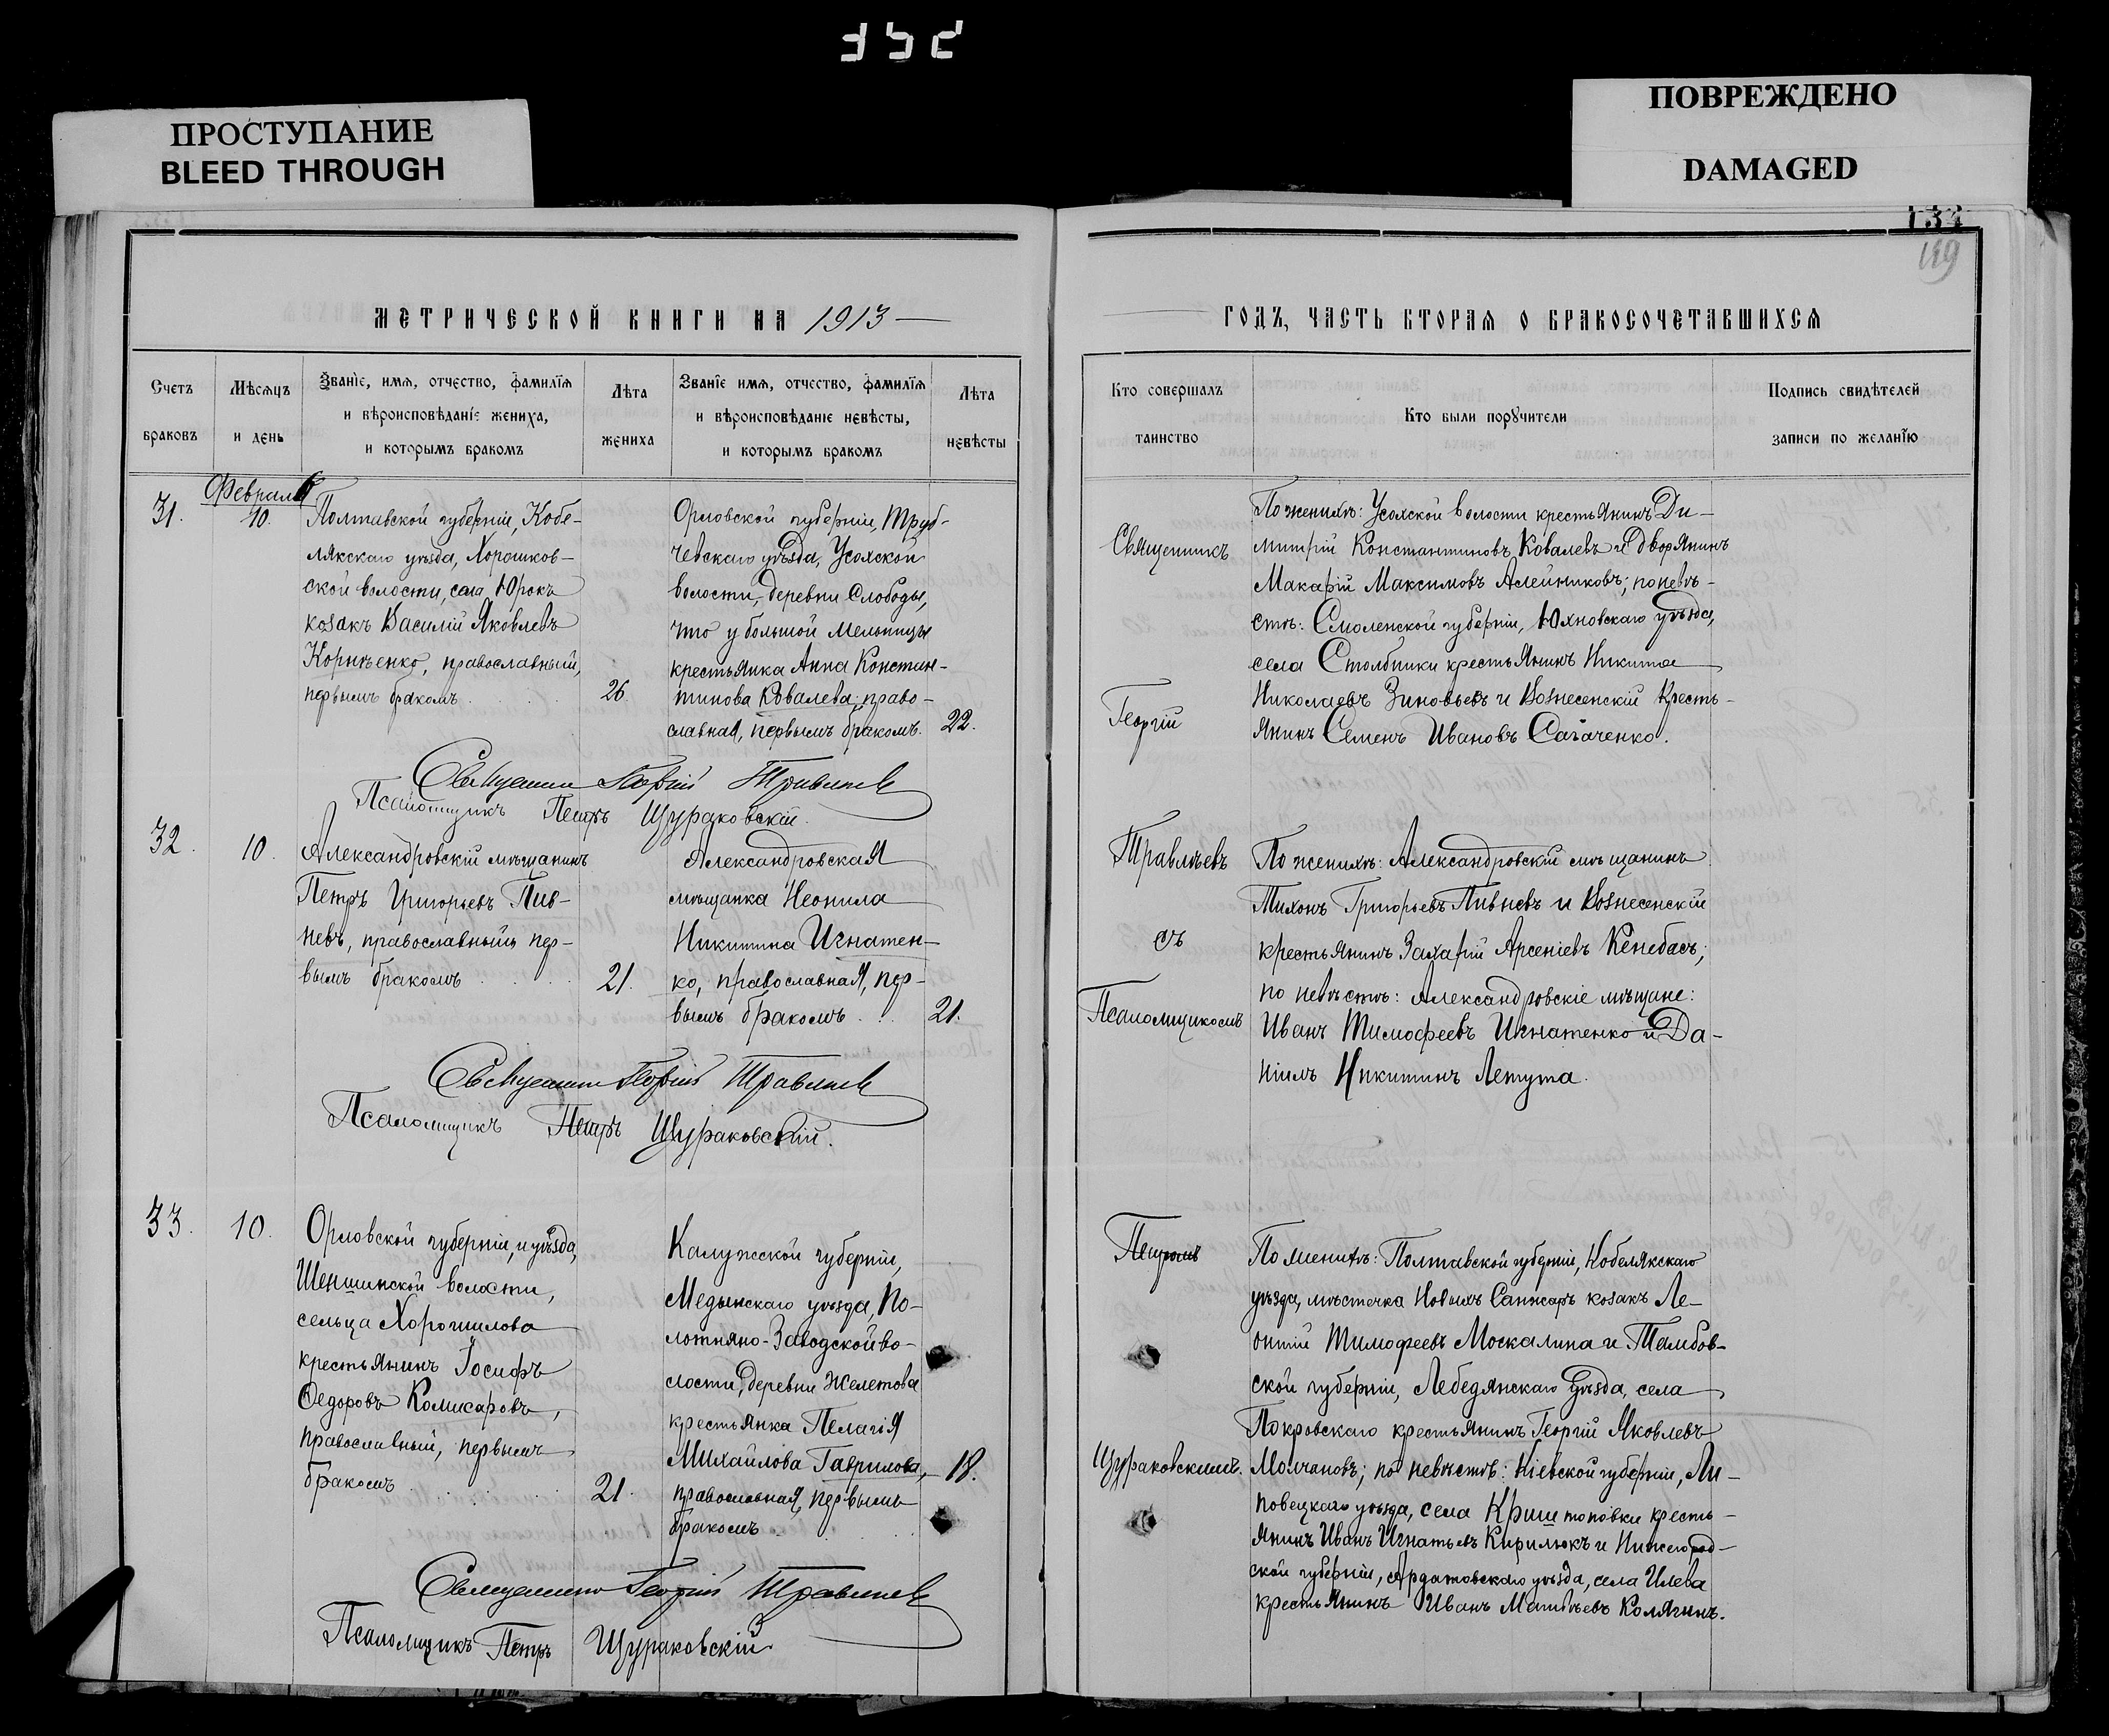 ПРОСТУПАНИЕ
BLEED THROUGH
ПОВРЕЖДЕНО
DAMAGED
119
МЕТРИЧЕСКОЙ КНИГИ НА 1913
Счетъ браковъ
Мѣсяцъ и день
Званіе, имя, отчество, фамилія
и вѣроисповѣданіе жениха,
и которымъ бракомъ
Лѣта жениха
Званіе имя, отчество, фамилія
и вѣроисповѣданіе невѣсты,
и которымъ бракомъ
Лѣта невѣсты
Февраль
31.
10.
Полтавской губерніи, Кобе-
лякскаго уѣзда, Хорошков-
ской волости, села
козакъ Василій Яковлевъ
Корнѣенко, православный,
первымъ бракомъ
26.
Орловской губерніи, Труб-
чевскаго уѣзда, Усохской
волости, деревни Слободы,
что у большой Мельницы
крестьянка Анна Констан-
тинова Ковалева, право-
славная, первымъ бракомъ.
22.
Священникъ Георгій Травлѣевъ
Псаломщикъ Петръ Щураковскій.
32.
10.
Александровскій мѣщанинъ
Петръ Григорьевъ Пив-
невъ, православный, пер-
вымъ бракомъ
21.
Александровская
мѣщанка Неонила
Никитина Игнатен-
ко, православная, пер-
вымъ бракомъ
21.
Священникъ Георгій Травлѣевъ
Псаломщикъ Петръ Щураковскій.
33.
10.
Орловской губерніи, и уѣзда,
Шеншинской волости,
сельца Хорошилова
крестьянинъ Іосифъ
Федоровъ Комисаровъ,
православный, первымъ
бракомъ
21.
Калужской губерніи,
Медынскаго уѣзда, По-
лотняно-Заводской во-
лости, деревни Желетова
крестьянка Пелагія
Михайлова Гаврилова,
православная, первымъ
бракомъ
18.
Священникъ Георгій Травлѣевъ
Псаломщикъ Петръ Щураковскій
ГОДЪ, ЧАСТЬ ВТОРАЯ О БРАКОСОЧЕТАВШИХСЯ
Кто совершалъ таинство
Кто были поручители
Подпись свидѣтелей записи по желанію
Священникъ
Георгій
Травлѣевъ
съ
Псаломщикомъ
Петромъ
Щураковскимъ.
По женихѣ: Усохской волости крестьянинъ Ди-
митрій Константиновъ Ковалевъ и дворянинъ
Макарій Максимовъ Алейниковъ; по невѣ-
стѣ: Смоленской губерніи, Юхновскаго уѣзда,
села Столбики крестьянинъ Никита
Николаевъ Зиновьевъ и Вознесенскій кресть-
янинъ Семенъ Ивановъ Сагаченко.
По женихѣ: Александровскій мѣщанинъ
Тихонъ Григорьевъ Пивневъ и Вознесенскій
крестьянинъ Захарій Арсеніевъ Кенебасъ;
по невѣстѣ: Александровскіе мѣщане:
Иванъ Тимофеевъ Игнатенко и Да-
ніилъ Никитинъ Летута.
По женихѣ: Полтавской губерніи, Кобелякскаго
уѣзда, мѣстечка Новыхъ Санжаръ козакъ Ле-
онтій Тимофеевъ Москалина и Тамбов-
ской губерніи, Лебедянскаго уѣзда, села
Покровскаго крестьянинъ Георгій Яковлевъ
Молчановъ; по невѣстѣ: Кіевской губерніи, Ли-
повецкаго уѣзда, села Криштоповки кресть-
янинъ Иванъ Игнатьевъ Кирилюкъ и Нижегород-
ской губерніи, Ардатовскаго уѣзда, села Илева
крестьянинъ Иванъ Матвѣевъ Колягинъ.